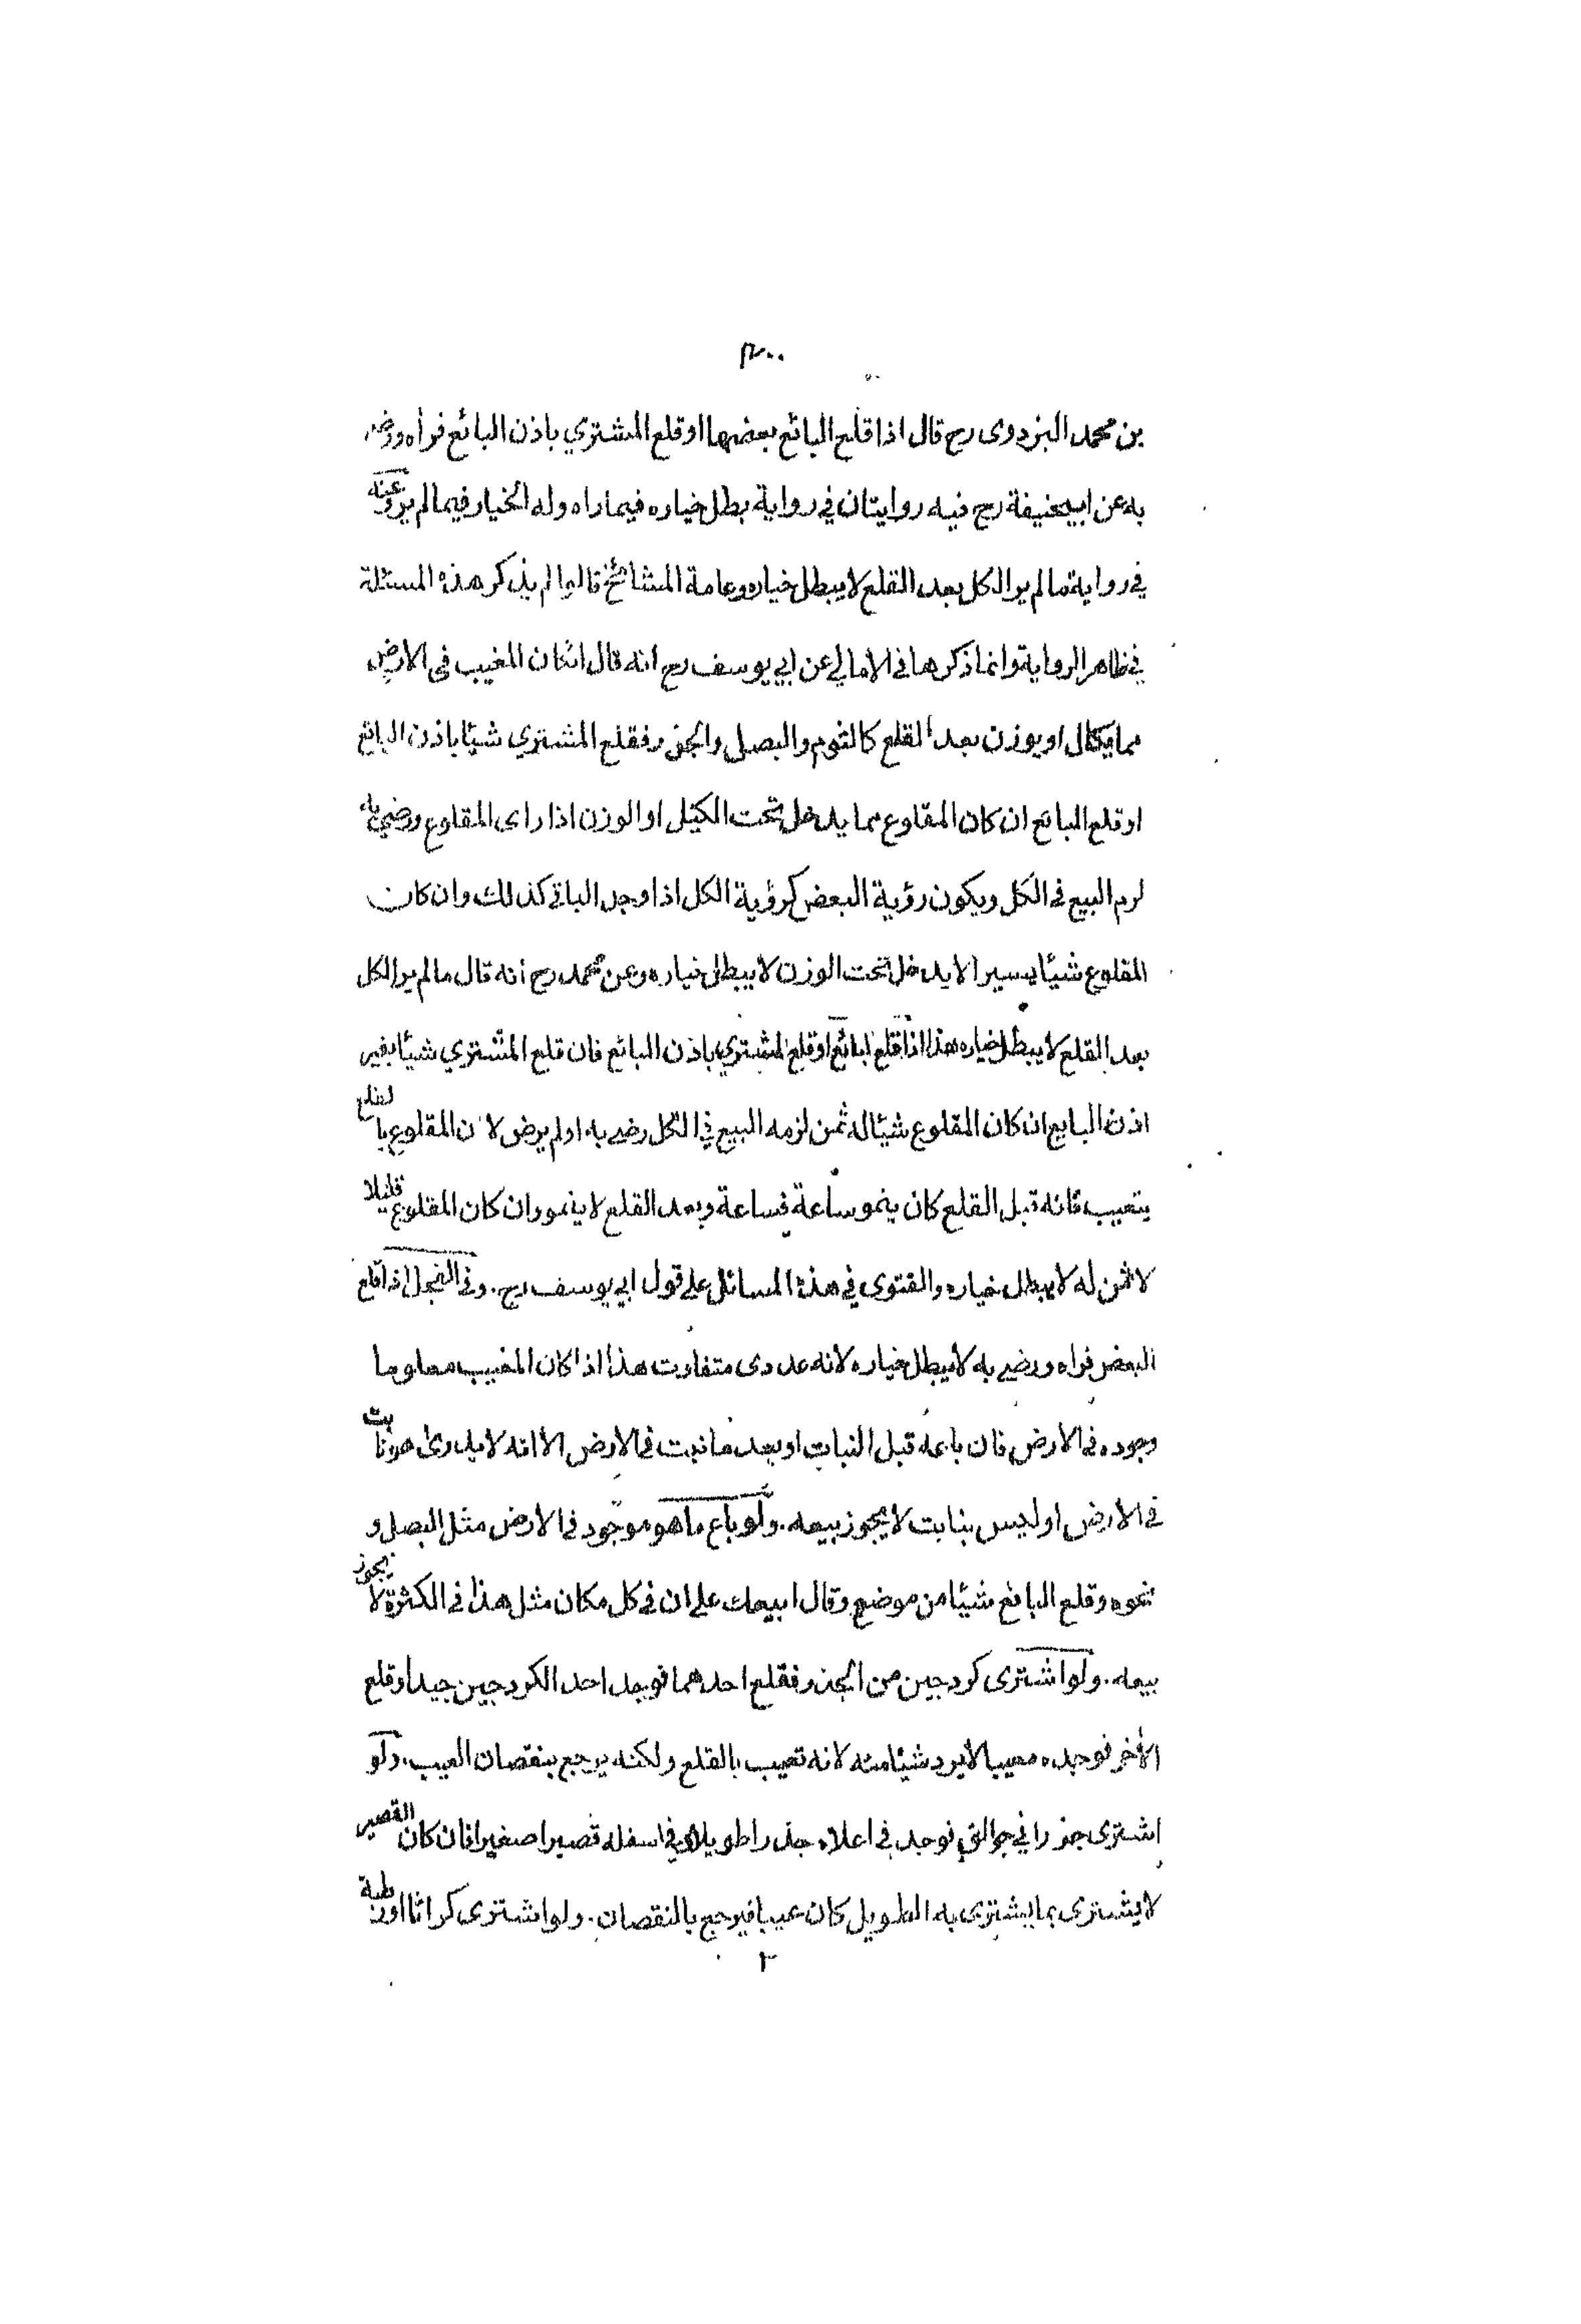 ٣٠٠
بن محمد البزدوى رح قال اذا قلع البائع بعضها او قلع المشتري باذن البائع فراه ورضى
به عن ابيحنيفة رح فيه روايتان في رواية بطل خياره فيما راه وله الخيار فيما لم ير وعنه
في رواية ما لم ير الكل بعد القلع لا يبطل خياره وعامة المشائخ قالوا لم يذكر هذه المسئلة
في ظاهر الرواية وانما ذكرها في الامالي عن ابي يوسف رح انه قال انكان المغيب فى الارض
مما يكال او يوزن بعد القلع كالثوم والبصل والجزر فقلع المشتري شيئا باذن البائع
او قلع البائع ان كان المقلوع مما يدخل تحت الكيل او الوزن اذا راى المقلوع ورضي به
لزم البيع فى الكل ويكون رؤية البعض كرؤية الكل اذا وجد الباقي كذلك وان كان
المقلوع شيئا يسيرا لا يدخل تحت الوزن لا يبطل خياره وعن محمد رح انه قال ما لم ير الكل
بعد القلع لا يبطل خياره هذا اذا قلع البائع او قلع المشتري باذن البائع فان قلع المشتري شيئا بغير
اذن البايع ان كان المقلوع شيئا له ثمن لزمه البيع في الكل رضي به او لم يرض لان المقلوع بالقلع
يتعيب فانه قبل القلع كان ينمو ساعة فساعة وبعد القلع لا ينمو وان كان المقلوع قليلا
لا ثمن له لا يبطل خياره والفتوى في هذه المسائل على قول ابي يوسف رح . وفى الفجل اذا قلع
البعض فراه ورضي به لا يبطل خياره لانه عددى متفاوت هذا اذا كان المغيب معلوما
وجوده فى الارض فان باعه قبل النبات او بعد ما نبت فى الارض الا انه لا يدرى هو نابت
فى الارض او ليس بنابت لا يجوز بيعه . ولو باع ما هو موجود فى الارض مثل البصل و
نحوه وقلع البائع شيئا من موضع وقال ابيعك على ان فى كل مكان مثل هذا فى الكثرة لا يجوز
بيعه . ولو اشترى كردجين من الجزر فقلع احدهما فوجد احد الكردجين جيدا وقلع
الاخر فوجده معيبا لا يرد شيئا منه لانه تعيب بالقلع ولكنه يرجع بنقصان العيب . ولو
اشترى جزرا في جوالق فوجد في اعلاه جزرا طويلا وفي اسفله قصيرا صغيرا فان كان القصير
لا يشترى بما يشترى به الطويل كان عيبا فيرجع بالنقصان . ولو اشترى كراثا او رطبة
٢